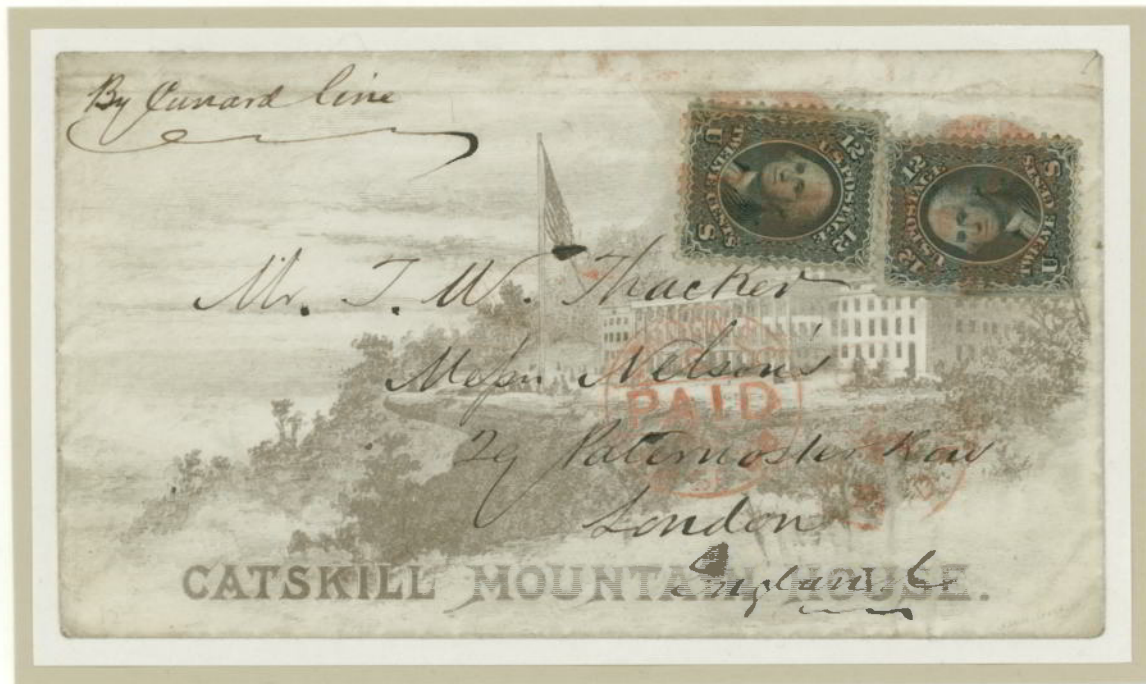 By Cunard Line
U 12 12 S
U.S. POSTAGE
TWELVE CENTS
12 12 S U
U.S. POSTAGE
TWELVE CENTS
Mr. T. W. Thacker
Messrs Nelson's
PAID
29 Paternoster Row
London
England
CATSKILL MOUNTAIN HOUSE.